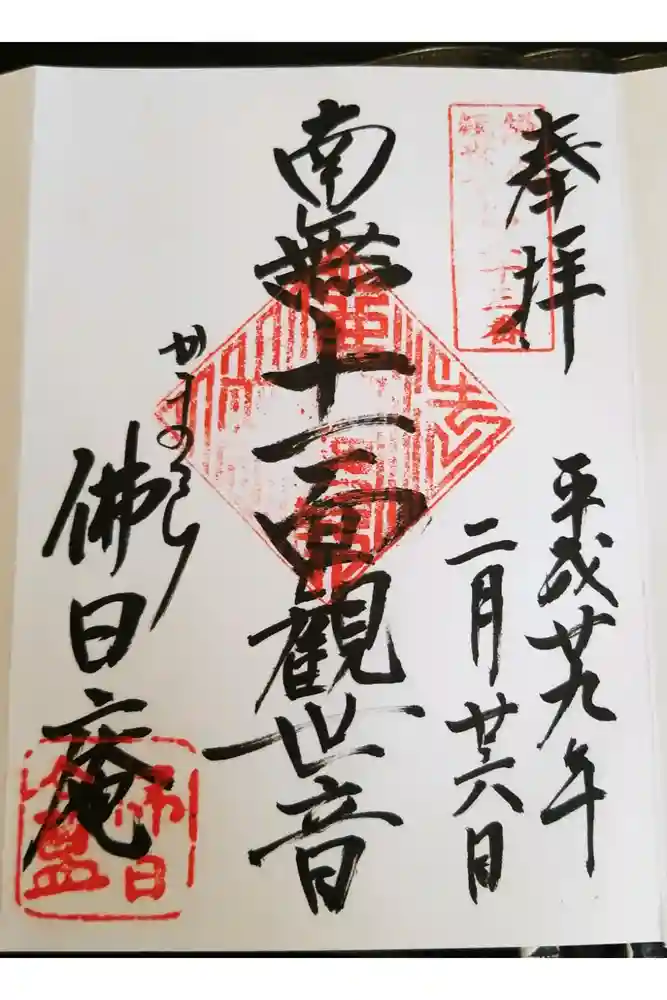 奉拝
平成廿九年
二月廿六日
南無十一面観世音
かまくら
佛日庵